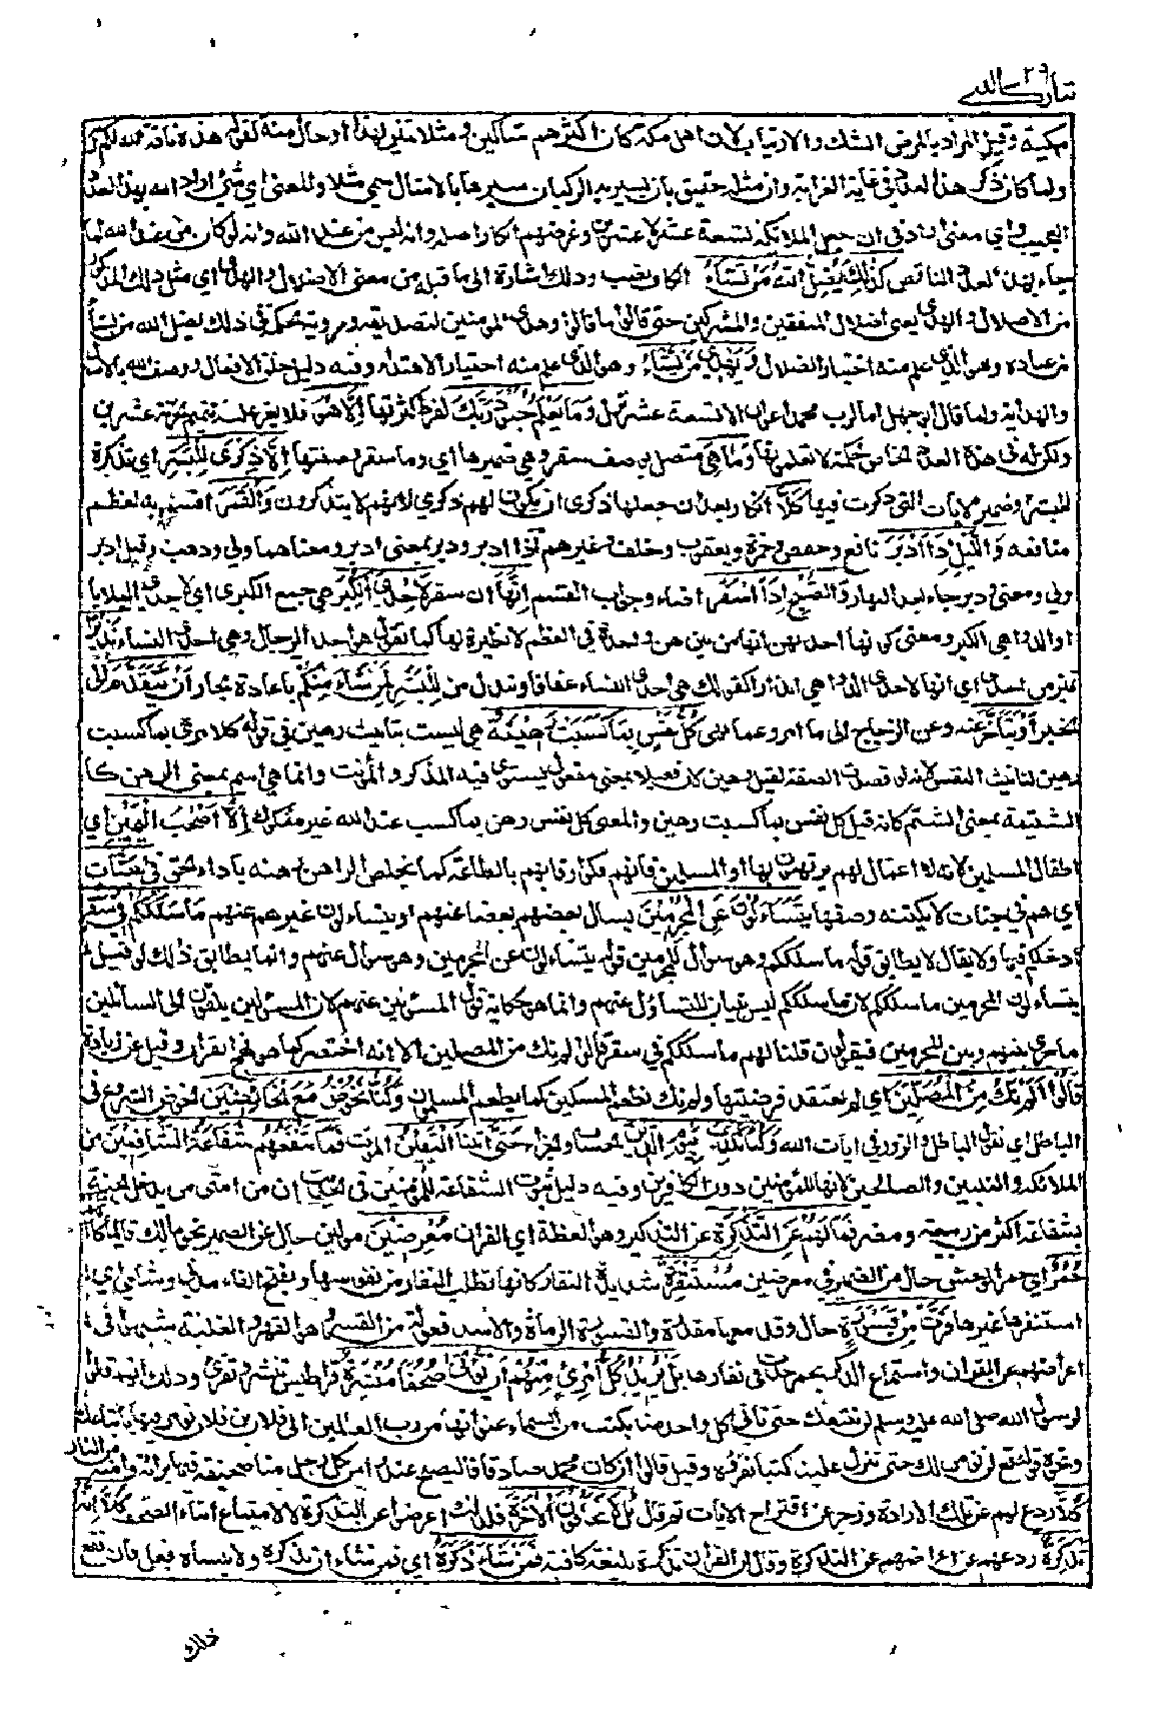 تبارك الذي ٢٩
مكية وقيل المراد بالمرض الشك والارتياب لان اهل مكة كان اكثرهم شاكين ومثلا تمييز لهذا او حال منه كقوله هذه ناقة الله لكم
ولما كان ذكر هذا العدد في غاية الغرابة وان مثله حقيق بان يسير به الركبان سيرها بالامثال سمي مثلا والمعنى اي شئ اراد الله بهذا العدد
العجيب واي معنى اراد في ان جعل الملائكة تسعة عشر لا عشرين وغرضهم انكار اصله وانه ليس من عند الله وانه لو كان من عند الله لما
جاء بهذا العدد الناقص كَذٰلِكَ يُضِلُّ اللهُ مَنْ يَّشَاءُ الكاف نصب وذلك اشارة الى ما قبله من معنى الاضلال والهدى اي مثل ذلك المذكور
من الاضلال والهدى يعني اضلال المنفقين والمشركين حتى قالوا ما قالوا وهدى المؤمنين لتصديقه ورؤية الحكمة في ذلك يضل الله من يشاء
من عباده وهو الذي علم منه اختيار الضلال وَيَهْدِيْ مَنْ يَّشَاءُ وهو الذي علم منه اختيار الاهتداء وفيه دليل خلق الافعال ووصف الله بالاضلال
والهداية ولما قال ابو جهل اما لرب محمد اعوان الا تسعة عشر نزل وَمَا يَعْلَمُ جُنُوْدَ رَبِّكَ لفرط كثرتها اِلَّا هُوَ فلا يعز عليه تتميم الخزنة عشرين
ولكن له في هذا العدد الخاص حكمة لا تعلمونها وَمَا هِيَ متصل بوصف سقر وهي ضميرها اي وما سقر وصفتها اِلَّا ذِكْرٰى لِلْبَشَرِ اي تذكرة
للبشر او ضمير الايات التي ذكرت فيها كَلَّا انكار بعد ان جعلها ذكرى ان يكون لهم ذكرى لانهم لا يتذكرون وَالْقَمَرِ اقسم به لعظم
منافعه وَالَّيْلِ اِذْ اَدْبَرَ نافع وحفص وحمزة ويعقوب وخلف وغيرهم اذا دبر ودبر بمعنى ادبر ومعناهما ولى وذهب وقيل ادبر
ولى ومعنى دبر جاء بعد النهار وَالصُّبْحِ اِذَا اَسْفَرَ اضاء وجواب القسم اِنَّهَا ان سقر لَاِحْدَى الْكُبَرِ هي جمع الكبرى اي لاحدى البلايا
او الدواهي الكبر ومعنى كونها احدهن انها من بينهن واحدة في العظم لا نظيرة لها كما تقول هو احد الرجال وهي احدى النساء نَذِيْرًا
تمييز من احدى اي انها لاحدى الدواهي انذارا كقولك هي احدى النساء عفافا وتبدل من لِلْبَشَرِ لِمَنْ شَاءَ مِنْكُمْ باعادة الجار اَنْ يَّتَقَدَّمَ الى
الخير اَوْ يَتَاَخَّرَ عنه وعن الزجاج الى ما امر وعما نهى كُلُّ نَفْسٍ بِمَا كَسَبَتْ رَهِيْنَةٌ هي ليست بتانيث رهين في قوله كل امرئ بما كسب
رهين لتانيث النفس لانه لو قصدت الصفة لقيل رهين لان فعيلا بمعنى مفعول يستوي فيه المذكر والمؤنث وانما هي اسم بمعنى الرهن كا
لشتيمة بمعنى الشتم كانه قيل كل نفس بما كسبت رهين والمعنى كل نفس رهن بما كسب عند الله غير مفكوك اِلَّا اَصْحٰبَ الْيَمِيْنِ اي
اطفال المسلمين لانه لا اعمال لهم يرتهنون بها او المسلمين فانهم فكوا رقابهم بالطاعة كما يخلص الراهن رهنه باداء الحق فِيْ جَنّٰتٍ
اي هم في جنات لا يكتنه وصفها يَتَسَاءَلُوْنَ عَنِ الْمُجْرِمِيْنَ يسال بعضهم بعضا عنهم او يتساءلون غيرهم عنهم مَا سَلَكَكُمْ فِيْ سَقَرَ
ادخلكم فيها ولا يقال لا يطابق قوله ما سلككم وهو سوال للمجرمين قوله يتساءلون عن المجرمين وهو سوال عنهم وانما يطابق ذلك لو قيل
يتساءلون المجرمين ما سلككم لان ما سلككم ليس ببيان للتساؤل عنهم وانما هو حكاية قول المسئولين عنهم لان المسئولين يلقون الى السائلين
ما جرى بينهم وبين المجرمين فيقولون قلنا لهم ما سلككم في سقر قالوا لم نك من المصلين الا انه اختصر كما هو نهج القران وقيل عن زيادة
قَالُوْا لَمْ نَكُ مِنَ الْمُصَلِّيْنَ اي لم نعتقد فرضيتها ولم نك نطعم المسكين كما يطعم المسلمون وَكُنَّا نَخُوْضُ مَعَ الْخَائِضِيْنَ الخوض الشروع في
الباطل اي نقول الباطل والزور في ايات الله وَكُنَّا نُكَذِّبُ بِيَوْمِ الدِّيْنِ الحساب والجزاء حَتّٰى اَتٰنَا الْيَقِيْنُ الموت فَمَا تَنْفَعُهُمْ شَفَاعَةُ الشَّافِعِيْنَ من
الملائكة والنبيين والصالحين لانها للمؤمنين دون الكافرين وفيه دليل ثبوت الشفاعة للمؤمنين في الحديث ان من امتي من يدخل الجنة
بشفاعته اكثر من ربيعة ومضر فَمَا لَهُمْ عَنِ التَّذْكِرَةِ عن التذكير وهو العظة اي القران مُعْرِضِيْنَ مولين حال عن الضمير نحو ما لك قائما كَاَنَّهُمْ
حُمُرٌ اي حمر الوحش حال من الضمير في معرضين مُسْتَنْفِرَةٌ شديدة النفار كانها تطلب النفار من نفوسها وبفتح الفاء مدني وشامي اي
استنفرها غيرها فَرَّتْ مِنْ قَسْوَرَةٍ حال وقد معها مقدرة والقسورة الرماة والاسد فعولة من القسر وهو القهر والغلبة شبهوا في
اعراضهم عن القران واستماع الذكر بحمر جدت في نفارها بَلْ يُرِيْدُ كُلُّ امْرِئٍ مِّنْهُمْ اَنْ يُّؤْتٰى صُحُفًا مُّنَشَّرَةً قراطيس تنشر وتقرأ وذلك انهم قالوا
لرسول الله صلى الله عليه وسلم لن نتبعك حتى تاتي كل واحد منا بكتب من السماء عنوانها من رب العالمين الى فلان بن فلان نؤمر فيها باتباعك
ونحوه قوله لن نؤمن لك حتى تنزل علينا كتبا نقرؤه وقيل قالوا ان كان محمد صادقا فليصبح عند راس كل رجل منا صحيفة فيها براءته وامنه
من النار
كَلَّا ردع لهم عن تلك الارادة وزجر عن اقتراح الايات ثم قال بَلْ لَّا يَخَافُوْنَ الْاٰخِرَةَ فلذلك اعرضوا عن التذكرة لا لامتناع ايتاء الصحف كَلَّا اِنَّهُ
تَذْكِرَةٌ ردعهم عن اعراضهم عن التذكرة وقال ان القران تذكرة بليغة كافية فَمَنْ شَاءَ ذَكَرَهُ اي فمن شاء ان يذكره ولا ينساه فعل فان نفع
ذلك